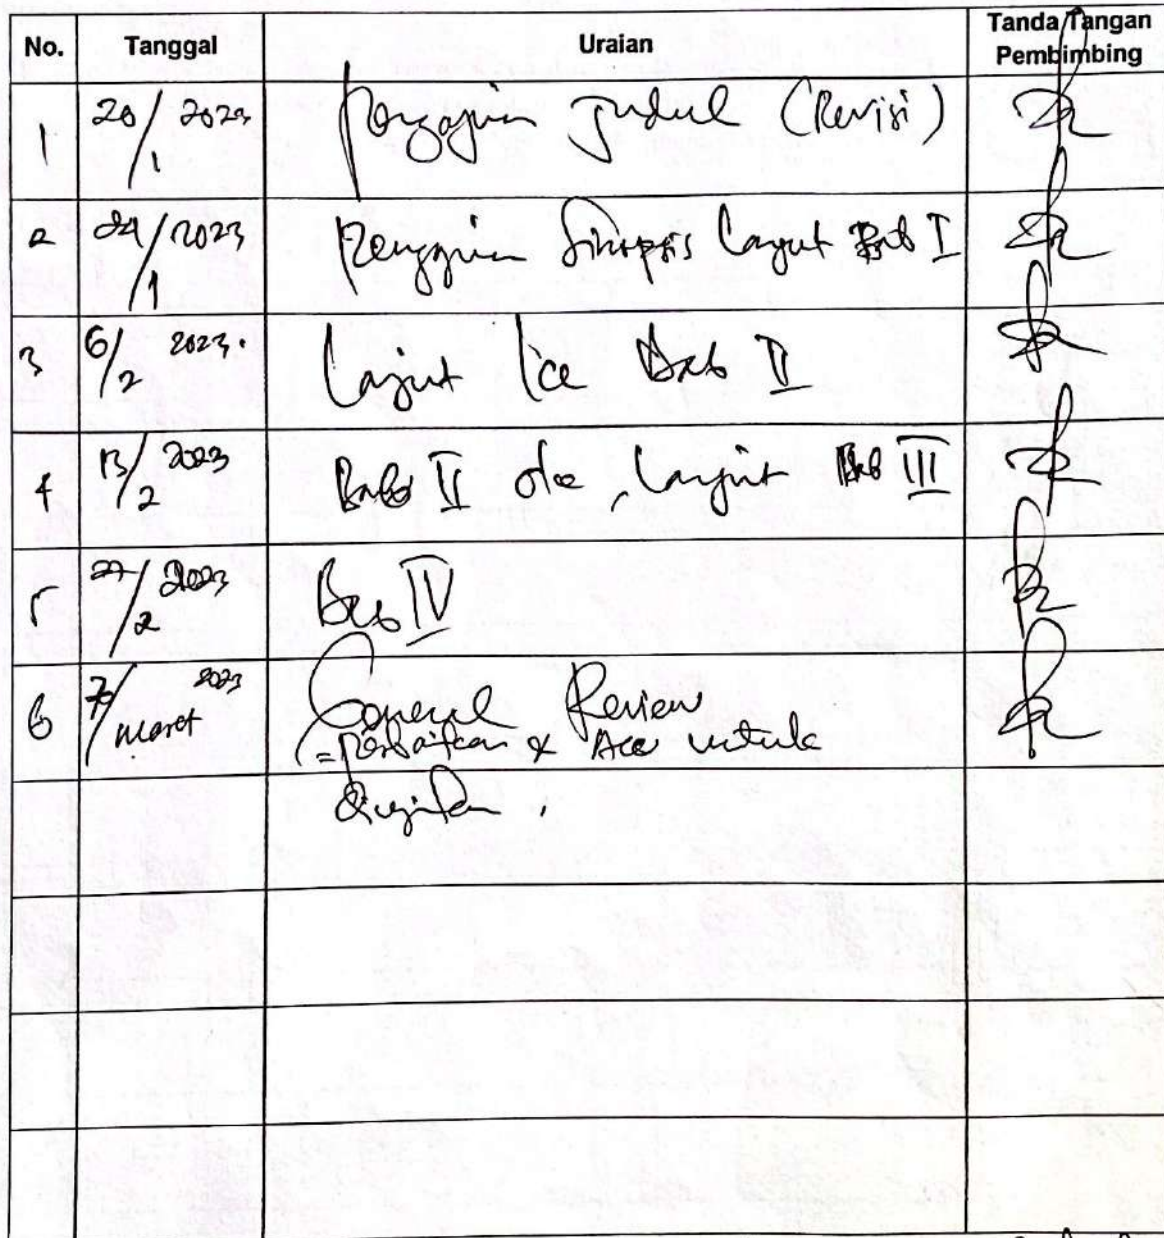 No. Tanggal Uraian Tanda Tangan Pembimbing
1 20/1 2023 Pengajuan Judul (Revisi)
2 24/1 2023 Pengajuan Sinopsis lanjut Bab I
3 6/2 2023. Lanjut ke Bab II
4 13/2 2023 Bab II oke, lanjut Bab III
5 27/2 2023 Bab IV
6 7/maret 2023 General Review
- Perbaikan & Acc untuk
diujikan.